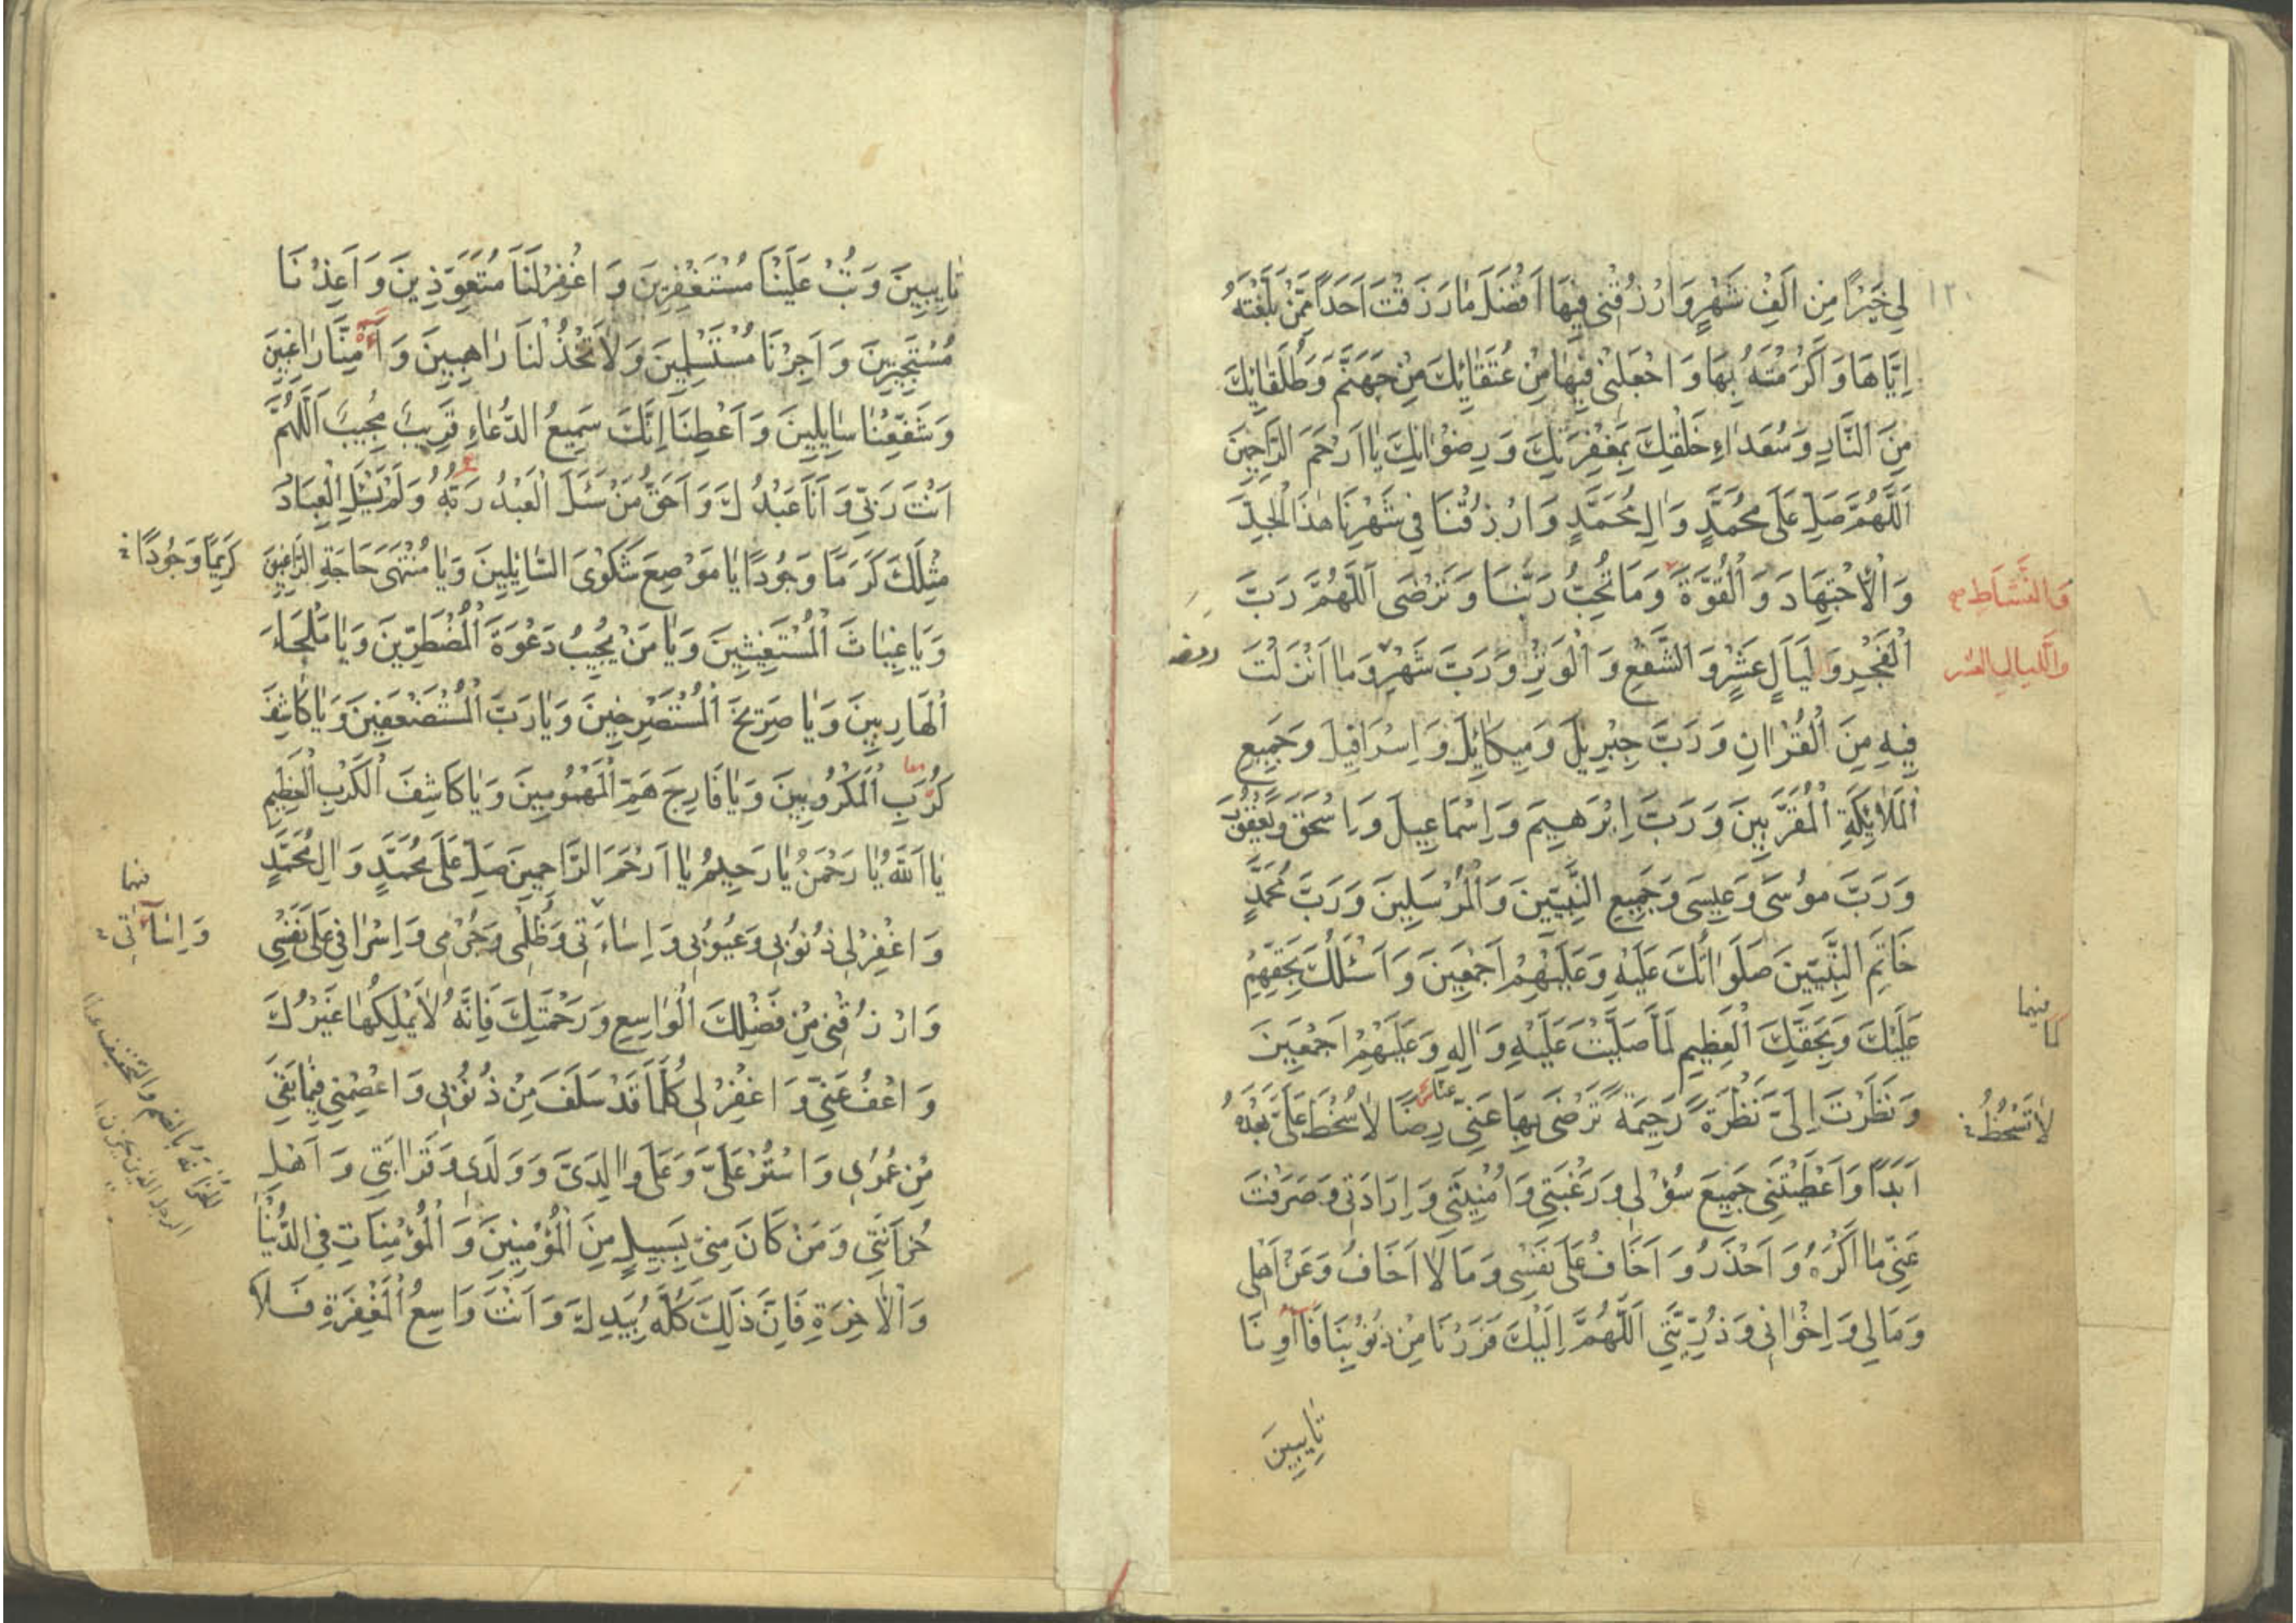 ١٢٠
لِي خَيْرًا مِنْ اَلْفِ شَهْرٍ وَارْزُقْنِي فِيهَا اَفْضَلَ مَا رَزَقْتَ اَحَدًا مِمَّنْ بَلَّغْتَهُ
اِيَّاهَا وَاَكْرَمْتَهُ بِهَا وَاجْعَلْنِي فِيهَا مِنْ عُتَقَائِكَ مِنْ جَهَنَّمَ وَطُلَقَائِكَ
مِنَ النَّارِ وَسُعَدَاءِ خَلْقِكَ بِمَغْفِرَتِكَ وَرِضْوَانِكَ يَا اَرْحَمَ الرَّاحِمِينَ
اَللّهُمَّ صَلِّ عَلَى مُحَمَّدٍ وَالِ مُحَمَّدٍ وَارْزُقْنَا فِي شَهْرِنَا هٰذَا الْجِدَّ
وَالْاِجْتِهَادَ وَالْقُوَّةَ وَمَا تُحِبُّ رَبَّنَا وَتَرْضَى اَللّهُمَّ رَبَّ
وَالنَّشَاطِ صح
الْفَجْرِ وَلَيَالٍ عَشْرٍ وَالشَّفْعِ وَالْوَتْرِ وَرَبَّ شَهْرِ وَمَا اَنْزَلْتَ
وَاللَّيَالِي العشر
رمضا
فِيهِ مِنَ الْقُرْاٰنِ وَرَبَّ جِبْرِيلَ وَمِيكَائِلَ وَاِسْرَافِيلَ وَجَمِيعِ
الْمَلَائِكَةِ الْمُقَرَّبِينَ وَرَبَّ اِبْرٰهِيمَ وَاِسْمَاعِيلَ وَاِسْحَقَ وَيَعْقُوبَ
وَرَبَّ مُوسَى وَعِيسَى وَجَمِيعِ النَّبِيِّينَ وَالْمُرْسَلِينَ وَرَبَّ مُحَمَّدٍ
خَاتَمِ النَّبِيِّينَ صَلَوَاتُكَ عَلَيْهِ وَعَلَيْهِمْ اَجْمَعِينَ وَاَسْئَلُكَ بِحَقِّهِمْ
عَلَيْكَ وَبِحَقِّكَ الْعَظِيمِ لَمَّا صَلَّيْتَ عَلَيْهِ وَاٰلِهِ وَعَلَيْهِمْ اَجْمَعِينَ
وَنَظَرْتَ اِلَيَّ نَظْرَةً رَحِيمَةً تَرْضَى بِهَا عَنِّي رِضًا لَا سُخْطَ عَلَيَّ بَعْدَهُ
لَا تَسْخَطُ
اَبَدًا وَاَعْطَيْتَنِي جَمِيعَ سُؤْلِي وَرَغْبَتِي وَاُمْنِيَّتِي وَاِرَادَتِي وَصَرَفْتَ
عَنِّي مَا اَكْرَهُ وَاَحْذَرُ وَاَخَافُ عَلَى نَفْسِي وَمَا لَا اَخَافُ وَعَنْ اَهْلِي
وَمَالِي وَاِخْوَانِي وَذُرِّيَّتِي اَللّهُمَّ اِلَيْكَ فَرَرْنَا مِنْ ذُنُوبِنَا فَاٰوِنَا
تَايِبِينَ
تَايِبِينَ وَتُبْ عَلَيْنَا مُسْتَغْفِرِينَ وَاغْفِرْلَنَا مُتَعَوِّذِينَ وَاَعِذْنَا
مُسْتَجِيرِينَ وَاَجِرْنَا مُسْتَسْلِمِينَ وَلَا تَخْذُلْنَا رَاهِبِينَ وَاٰمِنَّا رَاغِبِينَ
وَشَفِّعْنَا سَايِلِينَ وَاَعْطِنَا اِنَّكَ سَمِيعُ الدُّعَاءِ قَرِيبٌ مُجِيبٌ اَللّهُمَّ
اَنْتَ رَبِّي وَاَنَا عَبْدُكَ وَاَحَقُّ مَنْ سَئَلَ الْعَبْدُ رَبَّهُ وَلَمْ يَسْئَلِ الْعِبَادُ
مِثْلَكَ كَرَمًا وَجُودًا يَا مَوْضِعَ شَكْوَى السَّائِلِينَ وَيَا مُنْتَهَى حَاجَةِ الرَّاغِبِينَ
كَرِيمًا وَجُودًا
وَيَا غِيَاثَ الْمُسْتَغِيثِينَ وَيَا مَنْ يُجِيبُ دَعْوَةَ الْمُضْطَرِّينَ وَيَا مَلْجَاءَ
الْهَارِبِينَ وَيَا صَرِيخَ الْمُسْتَصْرِخِينَ وَيَا رَبَّ الْمُسْتَضْعَفِينَ وَيَا كَاشِفَ
كُرَبِ الْمَكْرُوبِينَ وَيَا فَارِجَ هَمِّ الْمَهْمُومِينَ وَيَا كَاشِفَ الْكَرْبِ الْعَظِيمِ
معا
يَا اَللّهُ يَا رَحْمٰنُ يَا رَحِيمُ يَا اَرْحَمَ الرَّاحِمِينَ صَلِّ عَلَى مُحَمَّدٍ وَالِ مُحَمَّدٍ
وَاغْفِرْلِي ذُنُوبِي وَعُيُوبِي وَاِسَاءَتِي وَظُلْمِي وَجُرْمِي وَاِسْرَافِي عَلَى نَفْسِي
وَاِسَاءَتِي
وَارْزُقْنِي مِنْ فَضْلِكَ الْوَاسِعِ وَرَحْمَتِكَ فَاِنَّهُ لَا يَمْلِكُهَا غَيْرُكَ
وَاعْفُ عَنِّي وَاغْفِرْلِي كُلَّمَا قَدْ سَلَفَ مِنْ ذُنُوبِي وَاعْصِمْنِي فِيمَا بَقِيَ
مِنْ عُمُرِي وَاسْتُرْ عَلَيَّ وَعَلَى وَالِدَيَّ وَوَلَدِي وَقَرَابَتِي وَاَهْلِ
حُزَانَتِي وَمَنْ كَانَ مِنِّي بِسَبِيلٍ مِنَ الْمُؤْمِنِينَ وَالْمُؤْمِنَاتِ فِي الدُّنْيَا
وَالْاٰخِرَةِ فَاِنَّ ذَلِكَ كُلَّهُ بِيَدِكَ وَاَنْتَ وَاسِعُ الْمَغْفِرَةِ فَلَا